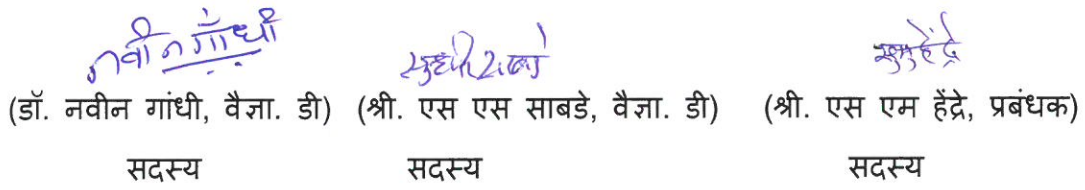 नवीन गाँधी सुधीर साबडे
(डॉ. नवीन गांधी, वैज्ञा. डी) (श्री. एस एस साबडे, वैज्ञा. डी) (श्री. एस एम हेंद्रे, प्रबंधक)
सदस्य सदस्य सदस्य